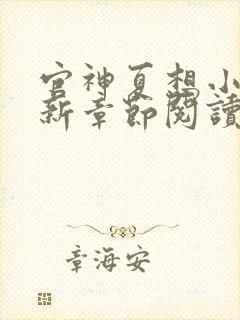 官神夏想小
新章節閱讀
章海安